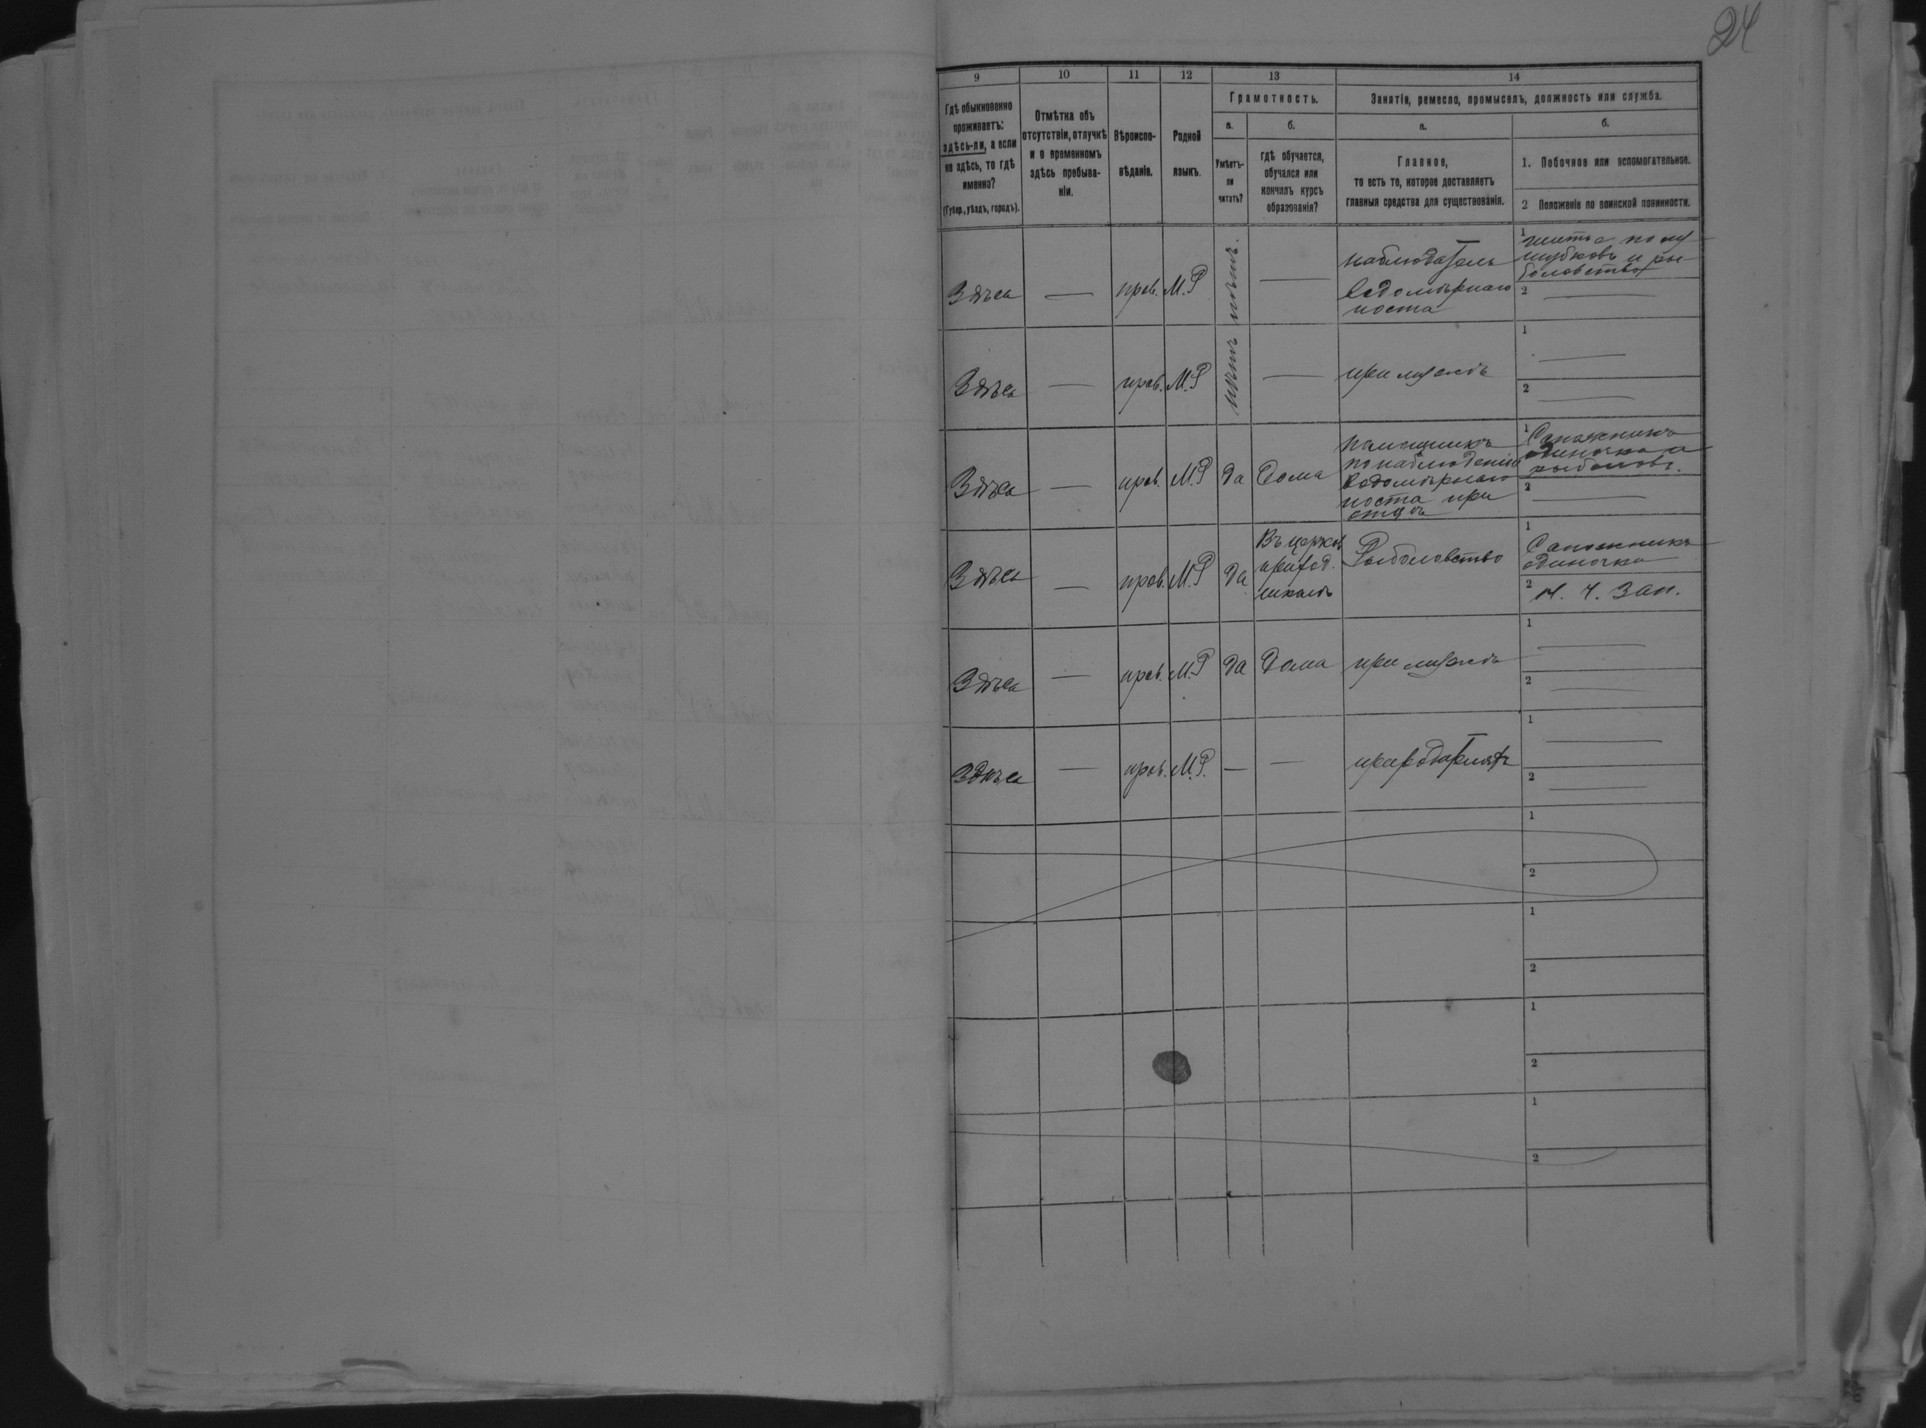 24
9 10 11 12 13 14
Гдѣ обыкновенно
проживаетъ:
здѣсь-ли, а если
не здѣсь, то гдѣ
именно?
(Губер., уѣздъ, городъ).
Отмѣтка объ
отсутствіи, отлучкѣ
и о временномъ
здѣсь пребыва-
ніи.
Вѣроиспо-
вѣданіе.
Родной
языкъ.
Грамотность.
а.
Умѣетъ-
ли
читать?
б.
гдѣ обучается,
обучался или
кончилъ курсъ
образованія?
Занятіе, ремесло, промыселъ, должность или служба.
а.
Главное,
то есть то, которое доставляетъ
главныя средства для существованія.
б.
1. Побочное или вспомогательное.
2 Положеніе по воинской повинности.
Здѣсь — прав. М.Р нѣтъ —
наблюдатель
водомѣрнаго
поста
1
2 —
Здѣсь — прав. М.Р нѣтъ — при мужѣ
1 —
2 —
Здѣсь — прав. М.Р да Дома
помощникъ
по наблюденію
водомѣрнаго
поста при
отцѣ
1 Сапожникъ
одиночка и
рыболов.
2 —
Здѣсь — прав. М.Р да
Въ церков
приход.
школѣ
Рыболовство
1 Сапожникъ
одиночка
2 М. Ч. Зап.
Здѣсь — прав. М.Р да Дома при мужѣ
1 —
2 —
Здѣсь — прав. М.Р. — —
1 —
2 —
1
2
1
2
1
2
1
2